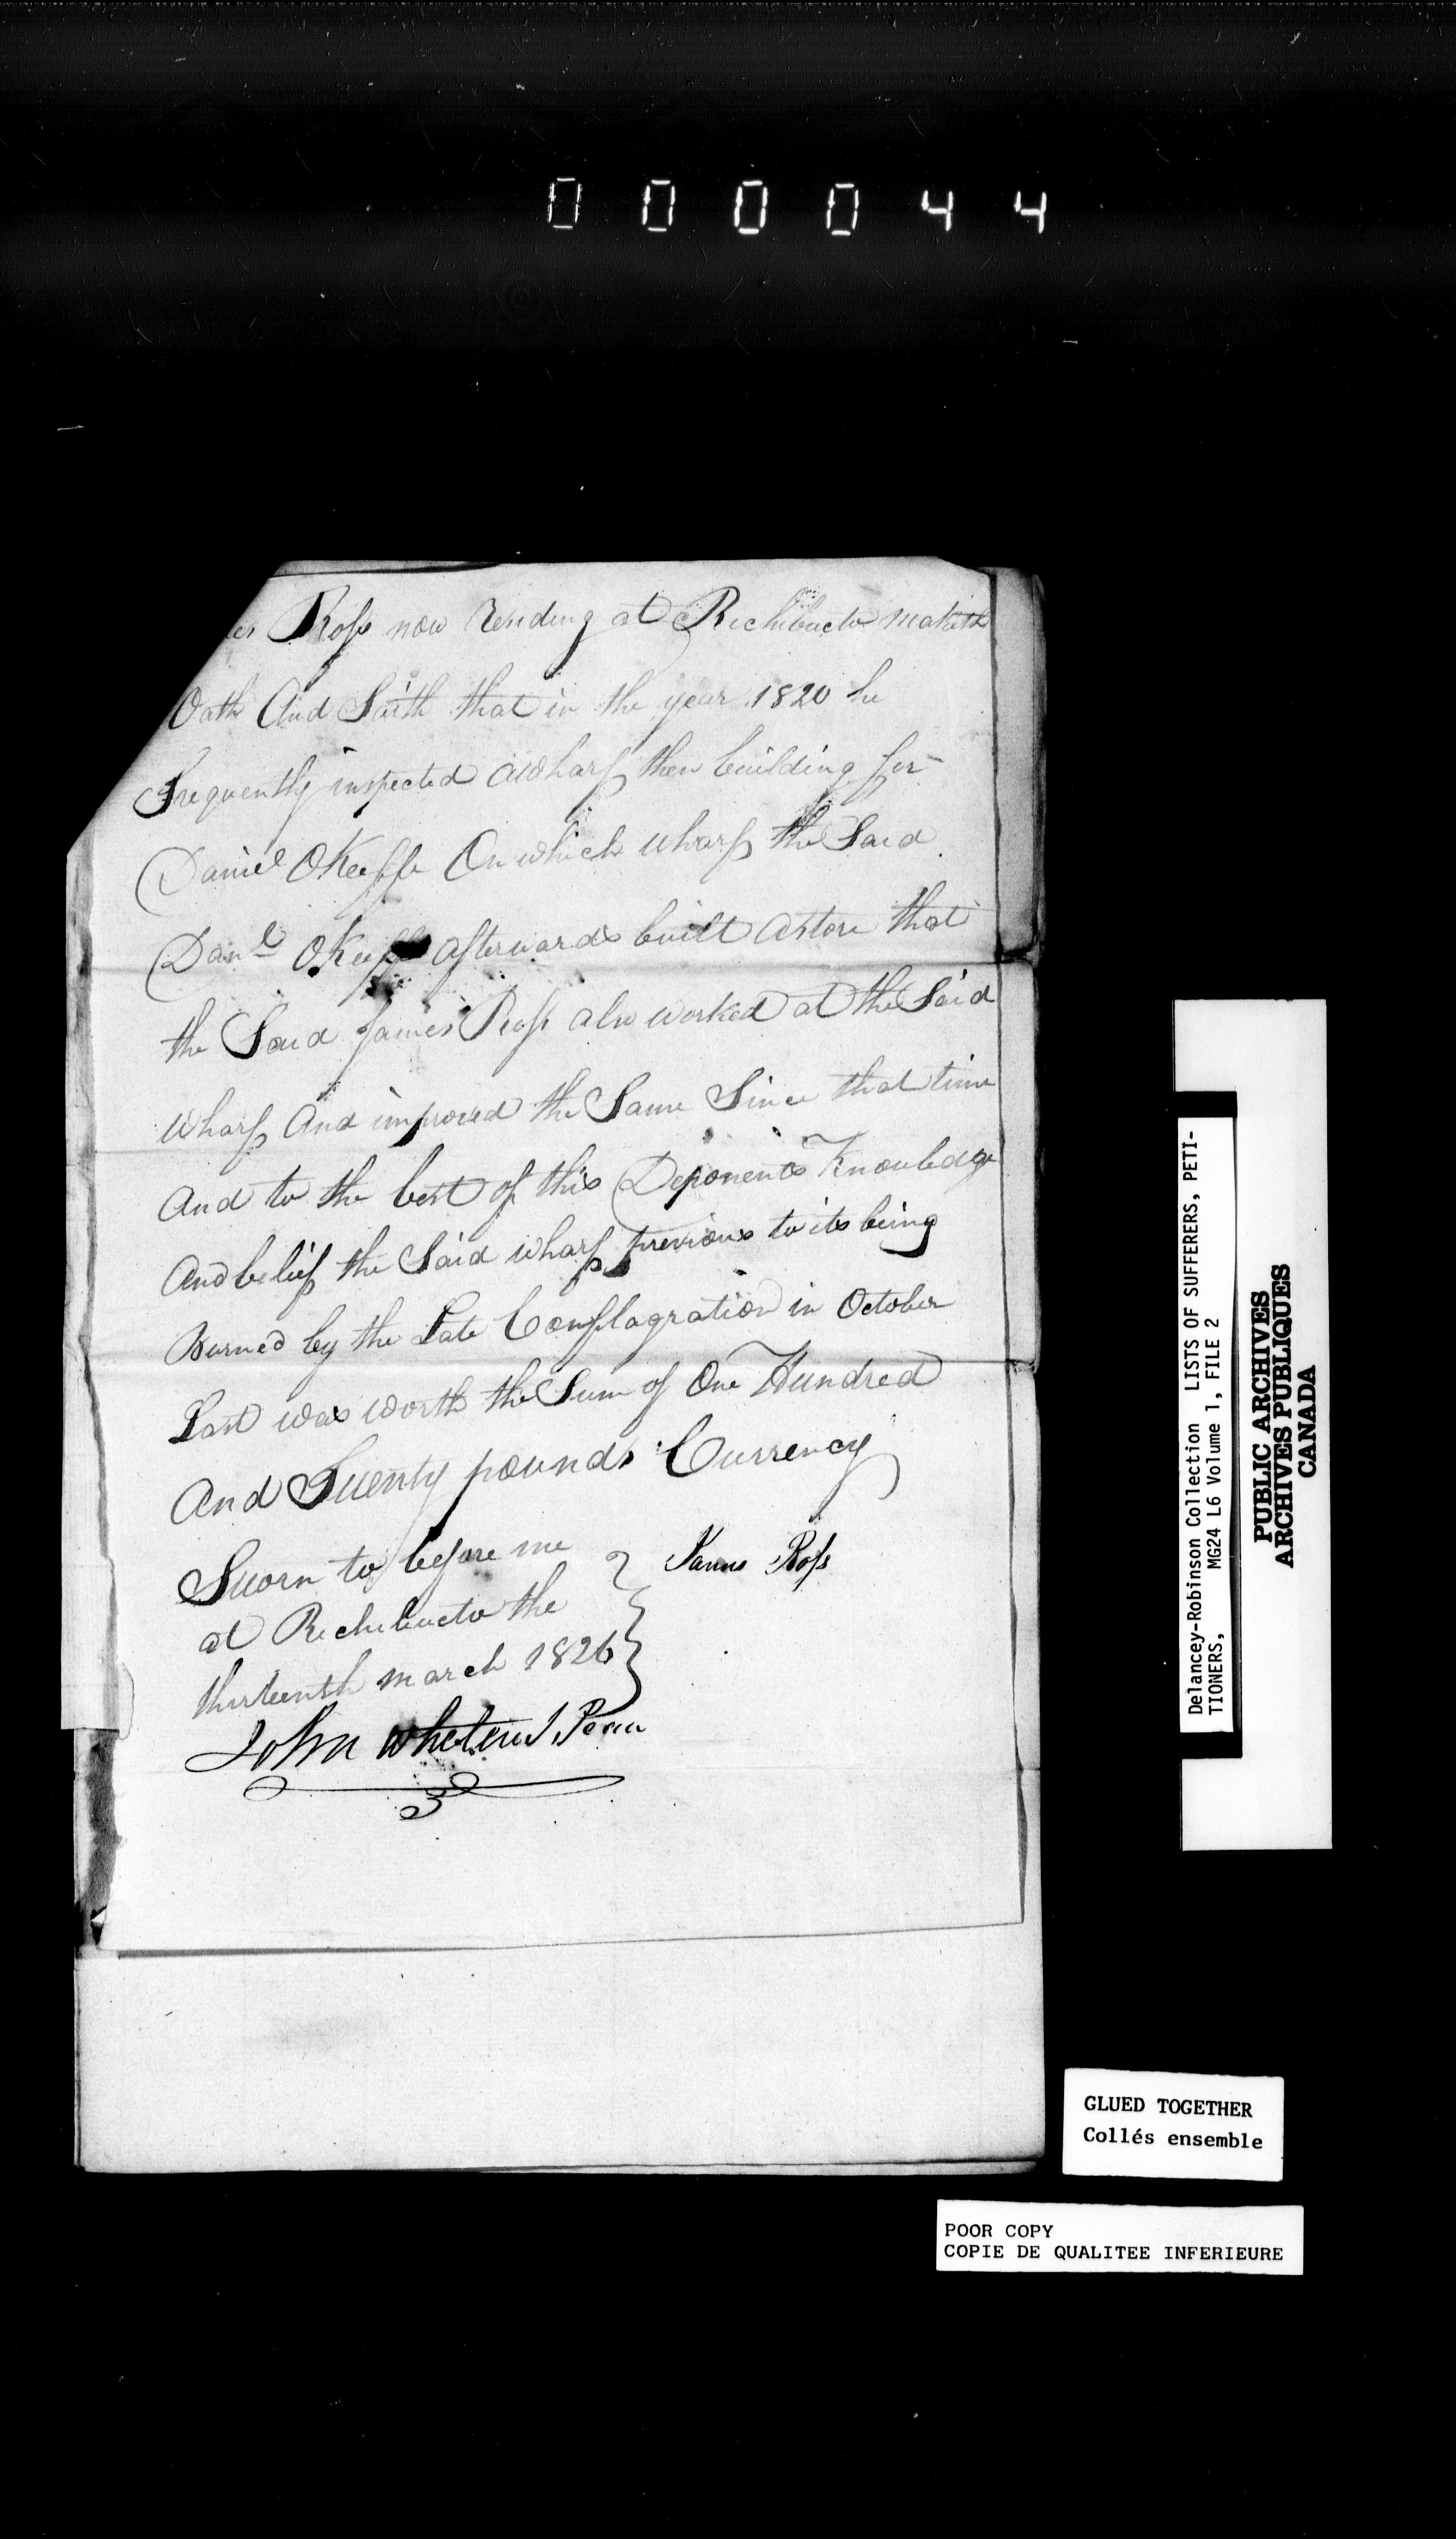 000044
es Ross now residing at Richibucto maketh
Oath And Saith that in the year 1820 he
frequently inspected a wharf then building for
Daniel OKeeffe On which wharf the Said
Danl OKeeffe afterwards built a store that
the Said James Ross also worked at the Said
wharf And improved the Same Since that time
And to the best of this Deponents Knowledge
And belief the Said wharf previous to its being
Burned by the Late Conflagration in October
Last was worth the Sum of One Hundred
And Twenty pounds Currency
Sworn to before me
at Richibucto the
thirteenth march 1826
James Ross
John Wheten J. Peace
Delancey-Robinson Collection LISTS OF SUFFERERS, PETI-
TIONERS, MG24 L6 Volume 1, FILE 2
PUBLIC ARCHIVES
ARCHIVES PUBLIQUES
CANADA
GLUED TOGETHER
Collés ensemble
POOR COPY
COPIE DE QUALITEE INFERIEURE